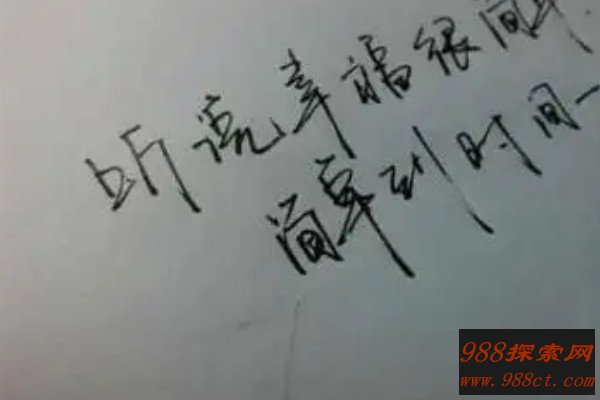 听说幸福很简单
简单到时间一
988探索网
www.988ct.com